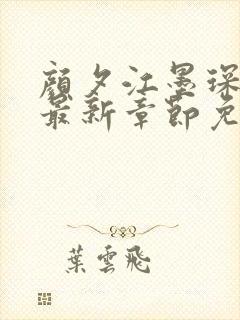 顏夕江墨琛
最新章節免
葉雲飛